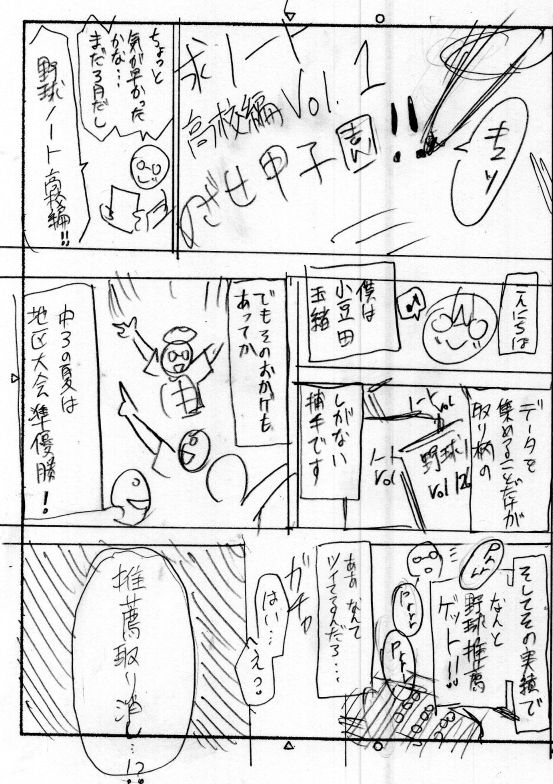 球ノート
高校編 Vol.1
めざせ甲子園!!
キュッ
ちょっと
気が早かった
かな…
まだ3月だし
野球ノート高校編!!
こんにちは
僕は
小豆田
玉緒
データを
集めることだけが
取り柄の
ノート
Vol
野球ノ
Vol 126
ノート
Vol
しがない
捕手です
でもそのおかげも
あってか
中3の夏は
地区大会準優勝!
そしてその実績で
なんと
野球推薦
ゲット!!
Prrr
Prrr
Prrr
ああ なんて
ツイてるんだろ…
ガチャ
はい…
え?
推薦取り消し…!?